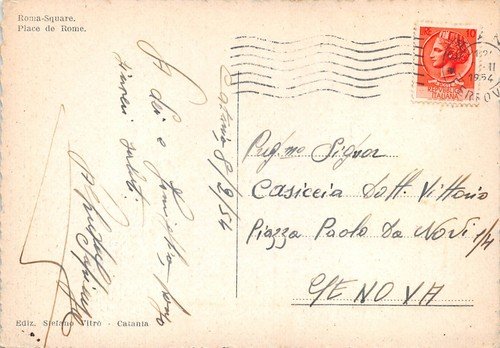 Roma-Square.
Place de Rome.
Catania 8/2/54
A Lei e Famiglia porgo
sinceri saluti.
10
REPUBBLICA
ITALIANA
1954
Preg.mo Signor
Casiccia Dott. Vittorio
Piazza Paolo Da Novi 1/4
GENOVA
Ediz. Stefano Vitrò - Catania